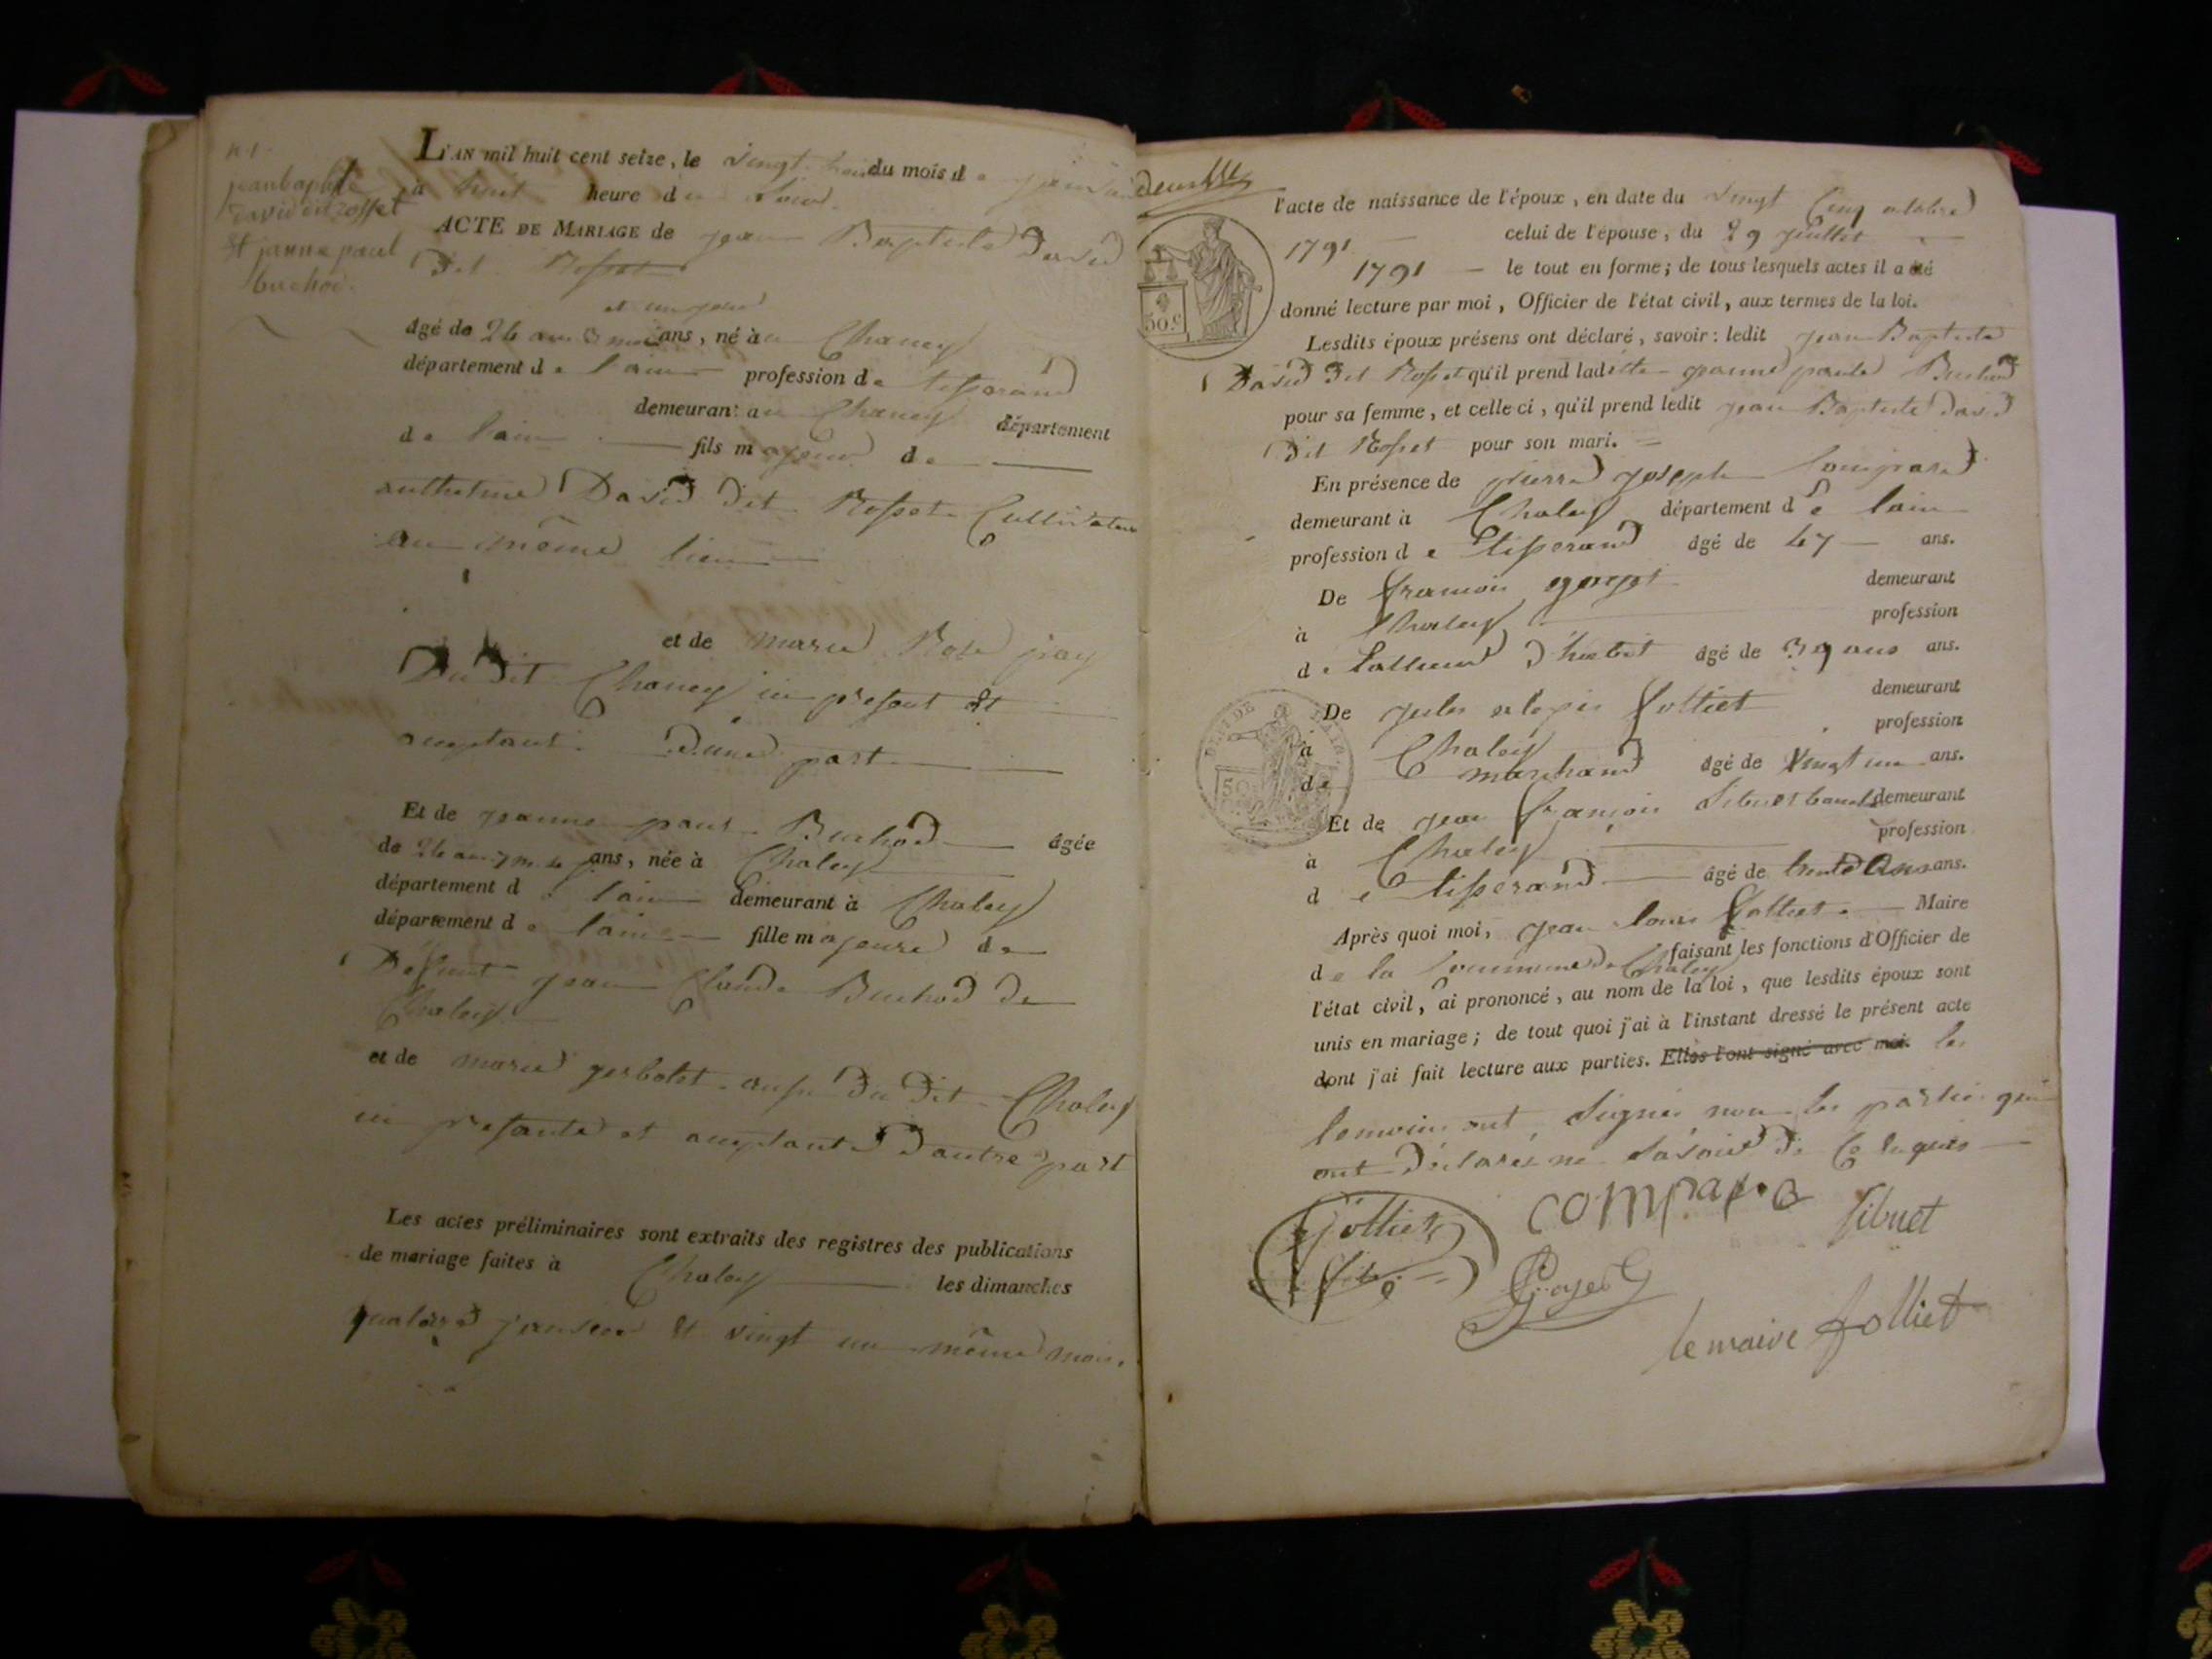 n.1.
jeanbaptiste
david dit rosset
et janne paul
buchod.
L'AN mil huit cent seize, le vingt huit du mois de janvier
à huit heure du Soir.
ACTE DE MARIAGE de jean Baptiste David
dit Rosset
et un jour
âgé de 24 ans 3 mois ans, né à Chaney
département de l'ain profession de tisserand
demeurant à Chaney département
de l'ain fils majeur de
anthelme David dit Rosset Cultivateur
au même lieu
et de marie Rose jray
Du dit Chaney ici present et
aceptant d'une part
Et de jeanne paul Buchod âgée
de 24 ans ans, née à Chaley
département de l'ain demeurant à Chaley
département de l'ain fille majeure de
Defunt jean Claude Buchod de
Chaley
et de marie gerbolet aussi du dit Chaley
ici presante et aceptante d'autre part
Les actes préliminaires sont extraits des registres des publications
de mariage faites à Chaley les dimanches
quatorze janvier et vingt un même mois.
l'acte de naissance de l'époux, en date du vingt Cinq octobre
1791 celui de l'épouse, du 29 juillet
1791 le tout en forme; de tous lesquels actes il a été
donné lecture par moi, Officier de l'état civil, aux termes de la loi.
50.C
Lesdits époux présens ont déclaré, savoir: ledit jean Baptiste
David dit Rosset qu'il prend ladite jeanne paule Buchod
pour sa femme, et celle ci, qu'il prend ledit jean Baptiste David
dit Rosset pour son mari.
En présence de pierre joseph Compara
demeurant à Chaley département de l'ain
profession de tisserand âgé de 47 ans.
De francois goyet demeurant
à Chaley profession
de tallieur d'habit âgé de 39 ans ans.
De jules alexis folliet demeurant
à Chaley profession
de marchand âgé de vingt un ans.
Et de jean francois Sibuet demeurant
à Chaley profession
de tisserand âgé de trente ans.
Après quoi moi, jean louis folliet Maire
de la Commune de Chaley faisant les fonctions d'Officier de
l'état civil, ai prononcé, au nom de la loi, que lesdits époux sont
unis en mariage; de tout quoi j'ai à l'instant dressé le présent acte
dont j'ai fait lecture aux parties. Elles l'ont signé avec moi. les
temoins ont signé non les parties qui
ont déclaré ne savoir de Ce requis
folliet compara Sibuet
goyet
le maire folliet